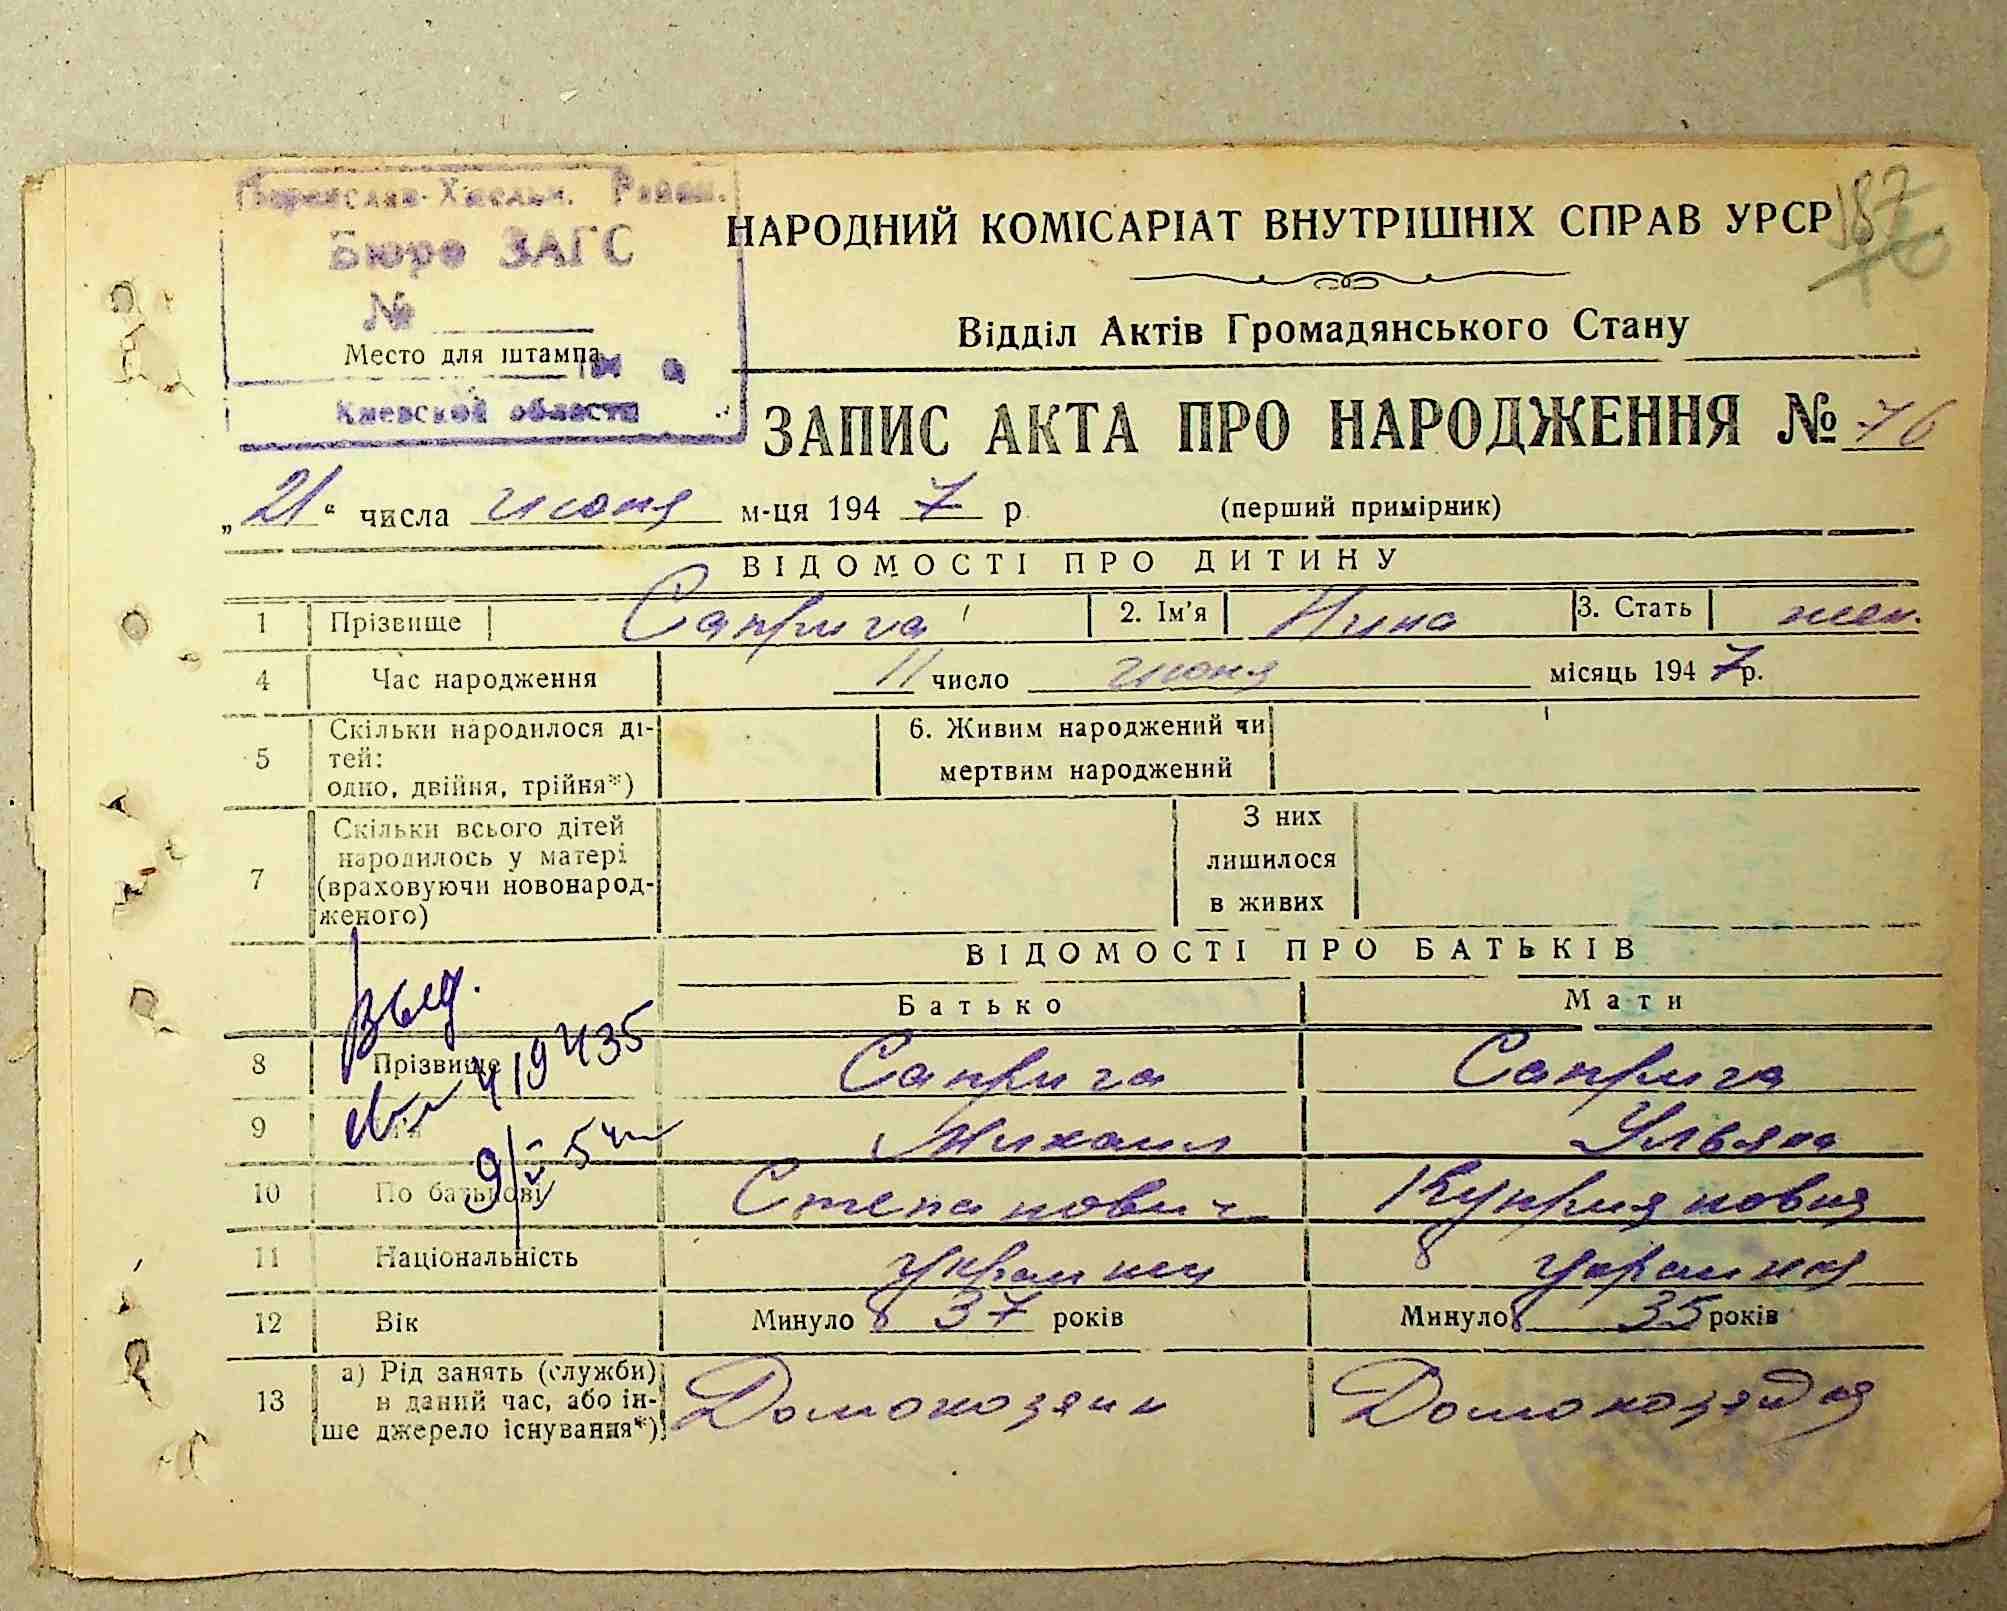 Переяслав-Хмельн. Район.
Бюро ЗАГС
№
Место для штампа
194 г.
Киевской области
187
76
НАРОДНИЙ КОМІСАРІАТ ВНУТРІШНІХ СПРАВ УРСР
Відділ Актів Громадянського Стану
ЗАПИС АКТА ПРО НАРОДЖЕННЯ № 76
„21" числа июня м-ця 1947 р. (перший примірник)
ВІДОМОСТІ ПРО ДИТИНУ
1 Прізвище Саприга 2. Ім'я Нина 3. Стать жен.
4 Час народження 11 число июня місяць 1947 р.
5 Скільки народилося ді-
тей:
одно, двійня, трійня*)
6. Живим народжений чи
мертвим народжений
7 Скільки всього дітей
народилось у матері
(враховуючи новонарод-
женого)
З них
лишилося
в живих
ВІДОМОСТІ ПРО БАТЬКІВ
Батько Мати
Выд.
419435
8 Прізвище Саприга Саприга
9 Ім'я Михаил Ульяна
10 По батькові Степанович Куприяновна
11 Національність украинец украинка
12 Вік Минуло 37 років Минуло 35 років
13 а) Рід занять (служби)
в даний час, або ін-
ше джерело існування*)
Домохозяин Домохозяйка